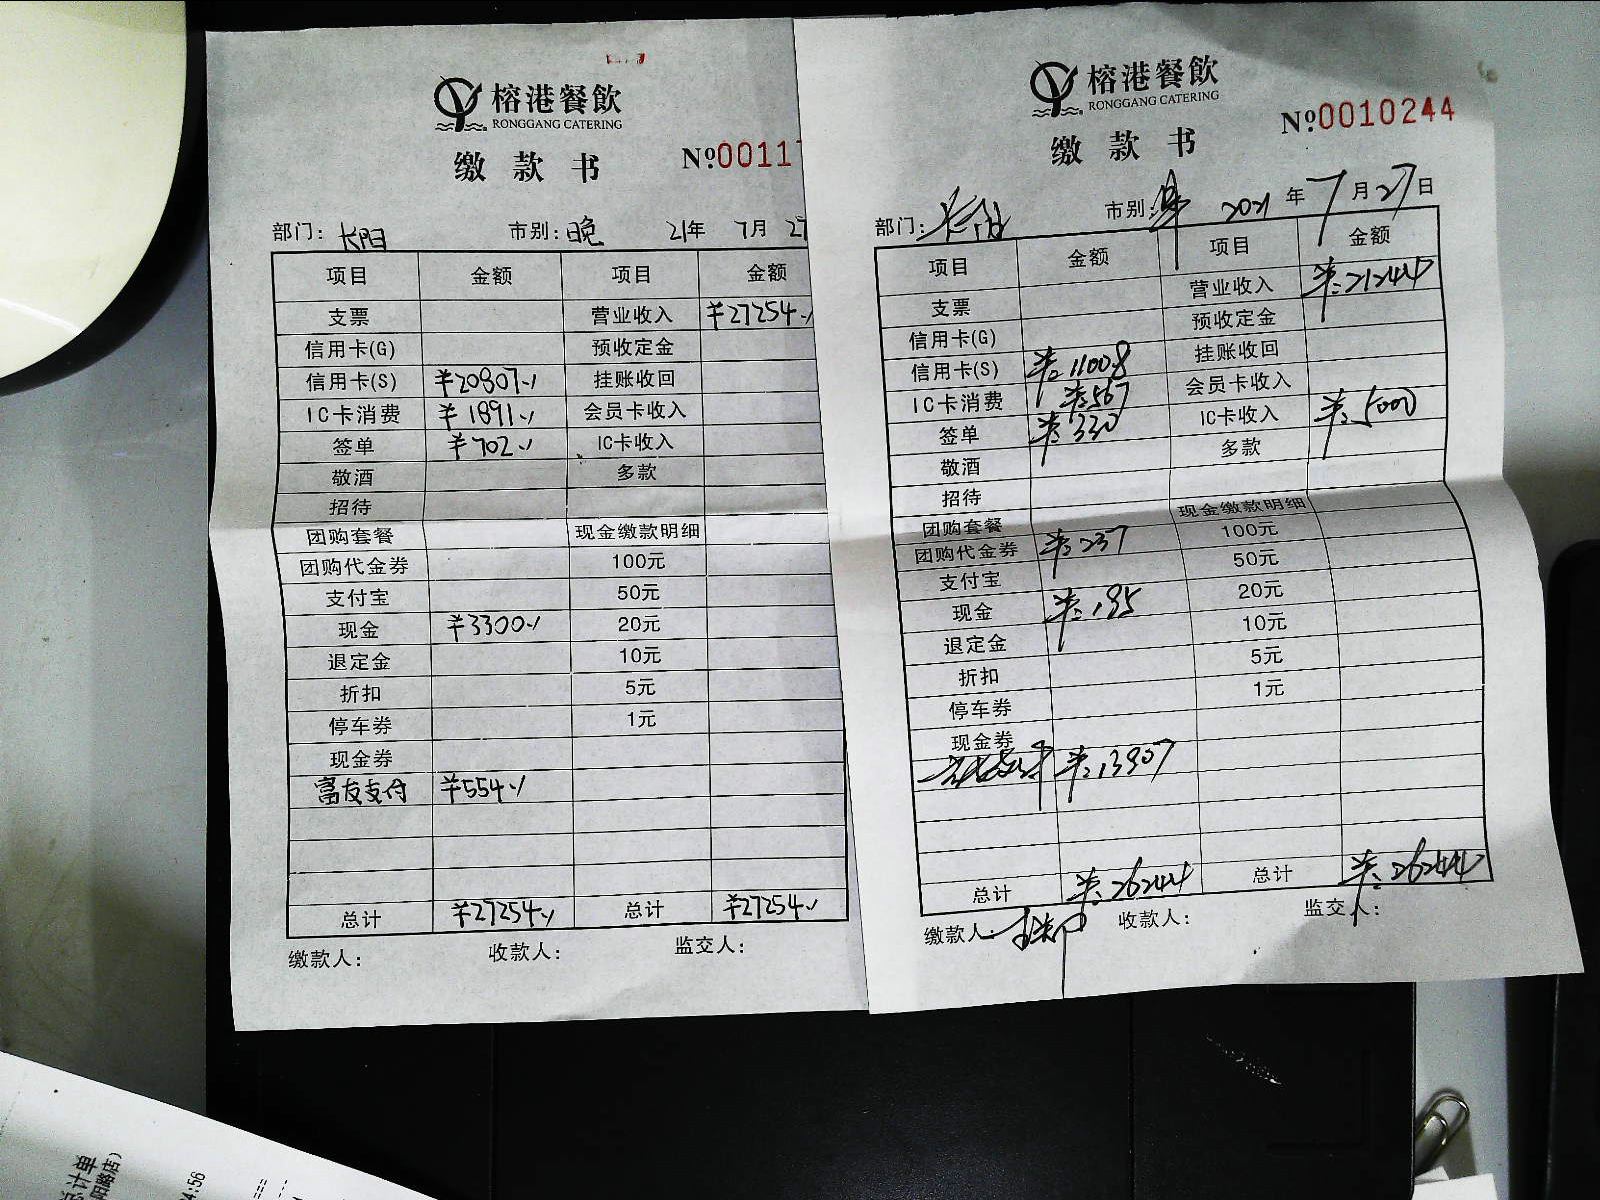 榕港餐飲
RONGGANG CATERING
缴款书
№0011
部门: 长阳 市别: 晚 21年 7月 27
项目 金额 项目 金额
支票 营业收入 ¥27254
信用卡(G) 预收定金
信用卡(S) ¥20807 挂账收回
IC卡消费 ¥1891 会员卡收入
签单 ¥702 IC卡收入
敬酒 多款
招待
团购套餐 现金缴款明细
团购代金券 100元
支付宝 50元
现金 ¥3300 20元
退定金 10元
折扣 5元
停车券 1元
现金券
富友支付 ¥554
总计 ¥27254 总计 ¥27254
缴款人: 收款人: 监交人:
榕港餐飲
RONGGANG CATERING
缴款书
№0010244
部门: 长阳 市别: 早 2021年7月27日
项目 金额 项目 金额
支票 营业收入 ¥:21244
信用卡(G) 预收定金
信用卡(S) ¥:11008 挂账收回
IC卡消费 ¥:567 会员卡收入
签单 ¥:330 IC卡收入 ¥:5000
敬酒 多款
招待
团购套餐 现金缴款明细
团购代金券 ¥:237 100元
支付宝 50元
现金 ¥:195 20元
退定金 10元
折扣 5元
停车券 1元
现金券
¥:13907
总计 ¥:26244 总计 ¥:26244
缴款人: 收款人: 监交人:
计单
阳路店)
4:56